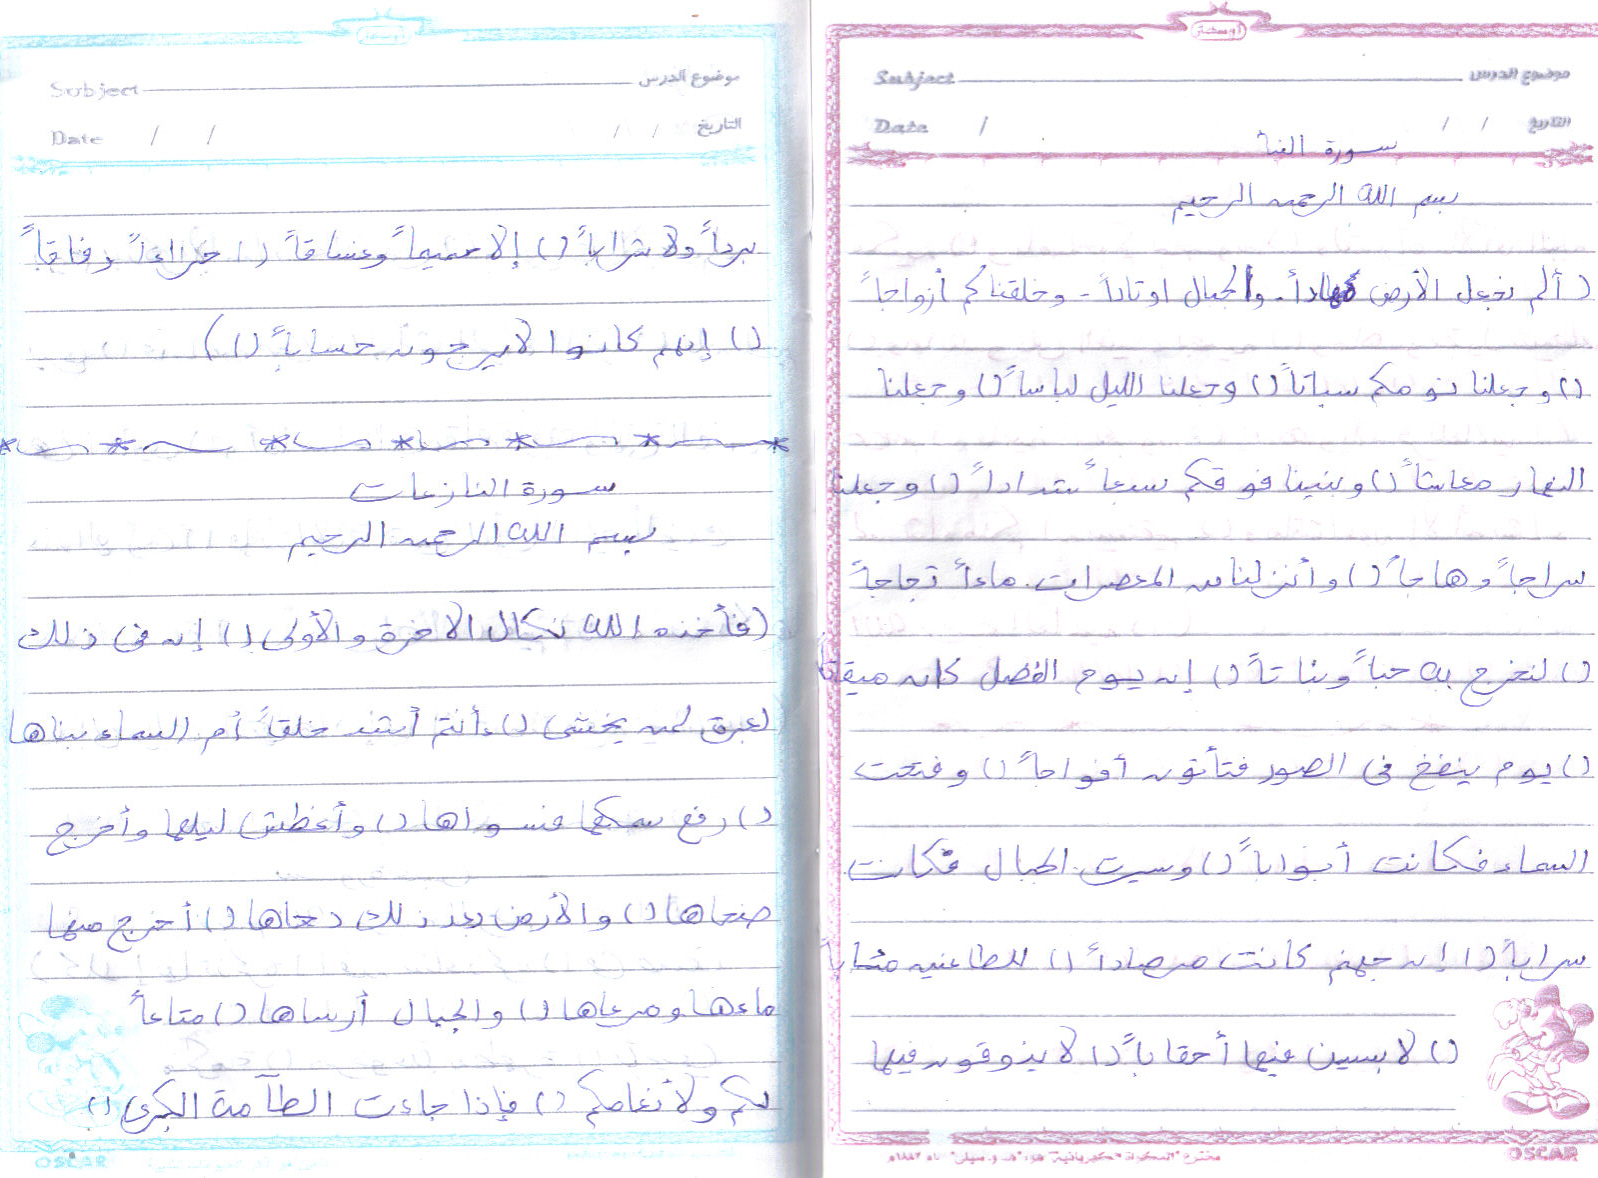 اوسكار
Subject موضوع الدرس
Date / / / التاريخ
سورة النبأ
بسم الله الرحمن الرحيم
( ألم نجعل الأرض مهاداً - والجبال اوتاداً - وخلقناكم أزواجاً
() وجعلنا نومكم سباتاً () وجعلنا الليل لباساً () وجعلنا
النهار معاشاً () وبنينا فوقكم سبعاً شداداً () وجعلنا
سراجاً وهاجاً () وأنزلنا من المعصرات ماءاً ثجاجاً
() لنخرج به حباً ونباتاً () إن يوم الفصل كان ميقاتا
() يوم ينفخ فى الصور فتأتون أفواجاً () وفتحت
السماء فكانت أبواباً () وسيرت الجبال فكانت
سراباً () إن جهنم كانت مرصاداً () للطاغين مئاباً
() لابسين فيها أحقاباً () لا يذوقون فيها
OSCAR
اوسكار
Subject موضوع الدرس
Date / / / / التاريخ
برداً ولا شراباً () إلا حميماً وغساقاً () جزاءاً وفاقاً
() إنهم كانوا لا يرجون حساباً () )
سورة النازعات
بسم الله الرحمن الرحيم
(فأخذه الله نكال الآخرة والأولى () إن فى ذلك
لعبرة لمن يخشى () ءأنتم أشد خلقاً أم السماء بناها
() رفع سمكها فسواها () وأغطش ليلها وأخرج
ضحاها () والأرض بعد ذلك دحاها () أخرج منها
ماءها ومرعاها () والجبال أرساها () متاعاً
لكم ولأنعامكم () فإذا جاءت الطآمة الكبرى ()
OSCAR